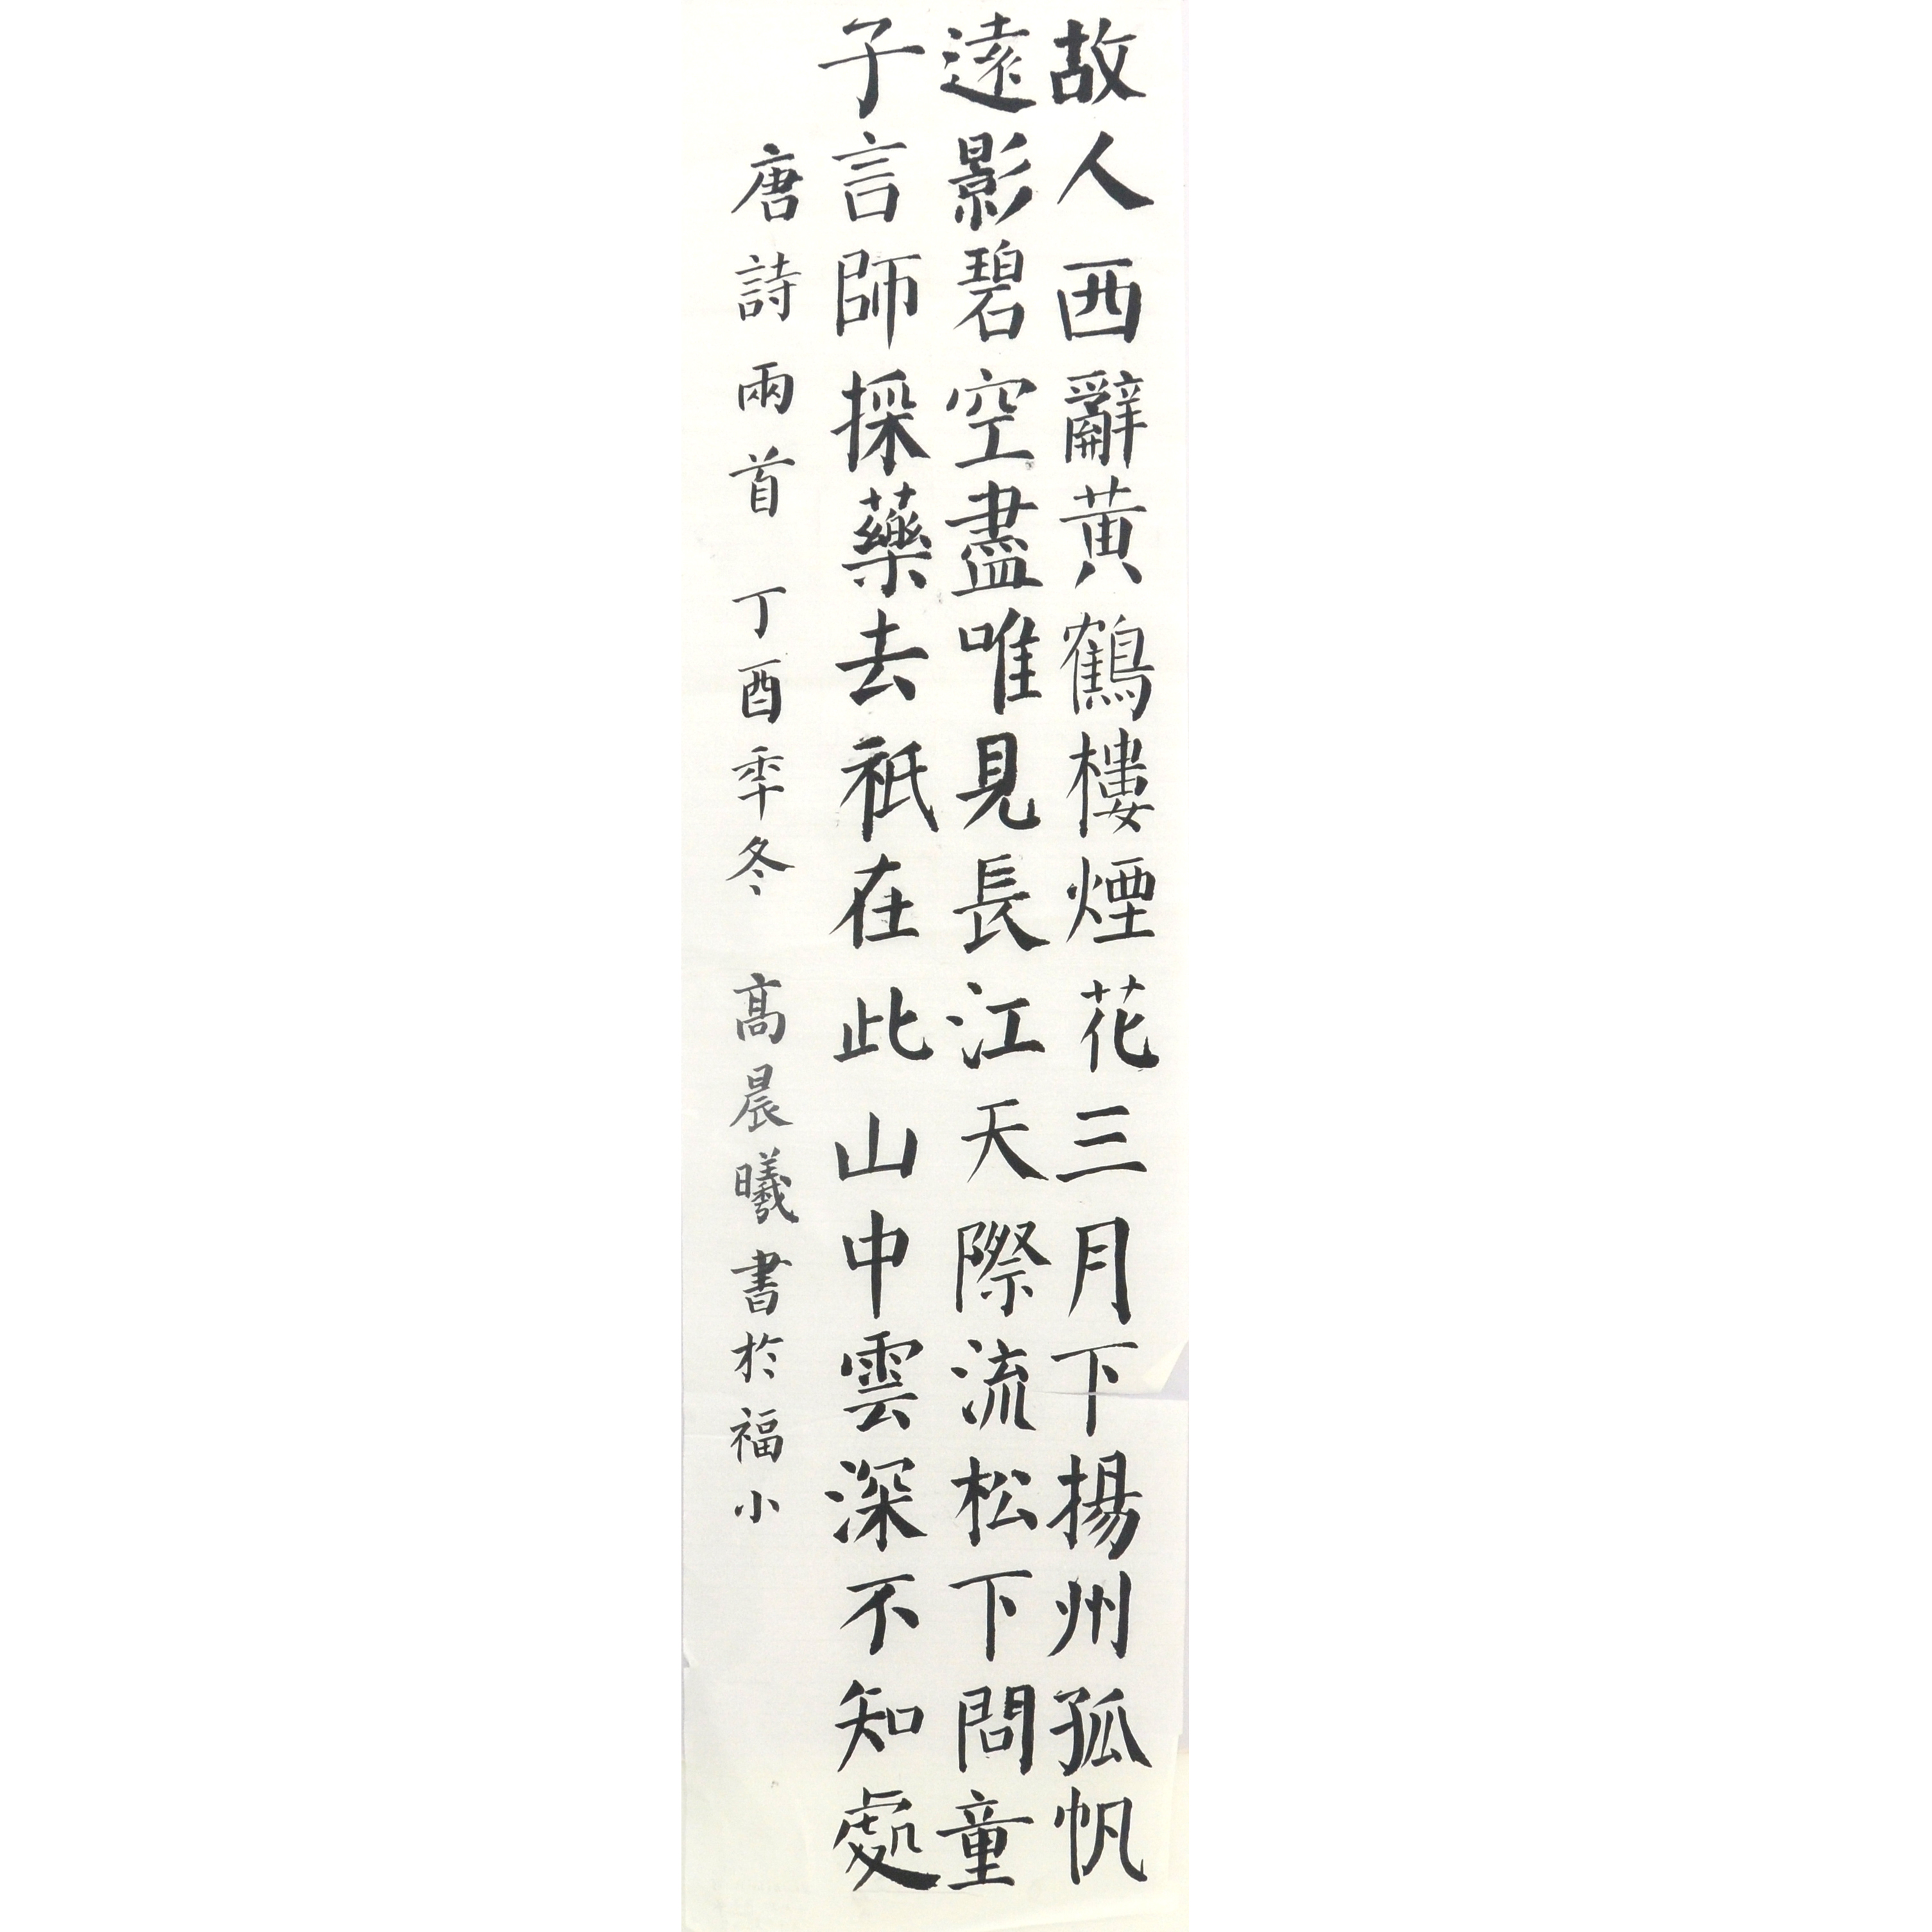 故人西辭黃鶴樓煙花三月下揚州孤帆
遠影碧空盡唯見長江天際流松下問童
子言師採藥去祇在此山中雲深不知處
唐詩兩首 丁酉年冬 高晨曦書於福小